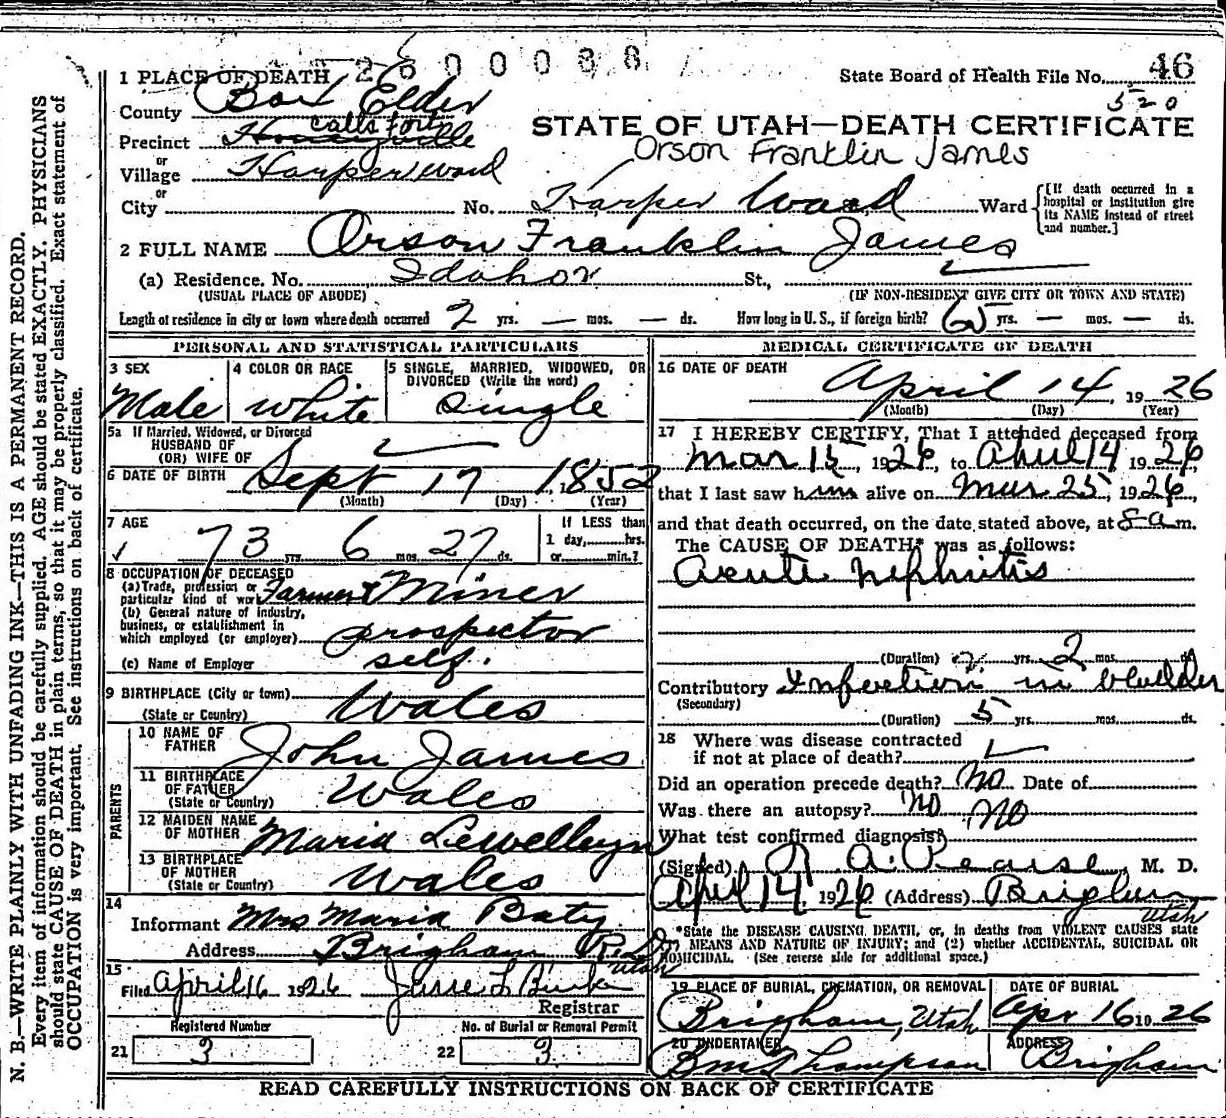 2600038
State Board of Health File No. 46
520
1 PLACE OF DEATH
County Box Elder
STATE OF UTAH—DEATH CERTIFICATE
calls fort
Precinct Honeyville
Orson Franklin James
or
Village Harper Ward
or
City No. Harper Ward Ward
[If death occurred in a hospital or institution give its NAME instead of street and number.]
2 FULL NAME Orson Franklin James
(a) Residence. No. Idaho St.,
(USUAL PLACE OF ABODE) (IF NON-RESIDENT GIVE CITY OR TOWN AND STATE)
Length of residence in city or town where death occurred 2 yrs. — mos. — ds. How long in U. S., if foreign birth? 65 yrs. — mos. — ds.
PERSONAL AND STATISTICAL PARTICULARS
3 SEX
Male
4 COLOR OR RACE
White
5 SINGLE, MARRIED, WIDOWED, OR DIVORCED (Write the word)
Single
5a If Married, Widowed, or Divorced
HUSBAND OF
(OR) WIFE OF
6 DATE OF BIRTH Sept 17 1852
(Month) (Day) (Year)
7 AGE
73 yrs. 6 mos. 27 ds.
If LESS than
1 day, hrs.
or min.?
8 OCCUPATION OF DECEASED
(a) Trade, profession or
particular kind of work Farmer & Miner
(b) General nature of industry,
business, or establishment in
which employed (or employer) prospector
(c) Name of Employer self.
9 BIRTHPLACE (City or town)
(State or Country) Wales
PARENTS
10 NAME OF
FATHER John James
11 BIRTHPLACE
OF FATHER
(State or Country) Wales
12 MAIDEN NAME
OF MOTHER Maria Lewellyn
13 BIRTHPLACE
OF MOTHER
(State or Country) Wales
14
Informant Mrs Maria Baty
Address Brigham
Utah
15
Filed April 16 1926 Jesse L
Registrar
Registered Number No. of Burial or Removal Permit
21 3 22 3
MEDICAL CERTIFICATE OF DEATH
16 DATE OF DEATH
April 14, 1926
(Month) (Day) (Year)
17 I HEREBY CERTIFY, That I attended deceased from
Mar 15, 1926, to April 14 1926,
that I last saw him alive on Mar 25, 1926,
and that death occurred, on the date stated above, at 8 a m.
The CAUSE OF DEATH* was as follows:
Acute Nephritis
(Duration) yrs. 2 mos. ds.
Contributory Infection in bladder
(Secondary)
(Duration) 5 yrs. mos. ds.
18 Where was disease contracted
if not at place of death?
Did an operation precede death? No Date of
Was there an autopsy? No No
What test confirmed diagnosis?
(Signed) A. Pearse, M. D.
April 14, 1926 (Address) Brigham
Utah
*State the DISEASE CAUSING DEATH, or, in deaths from VIOLENT CAUSES state
MEANS AND NATURE OF INJURY; and (2) whether ACCIDENTAL, SUICIDAL OR
HOMICIDAL. (See reverse side for additional space.)
19 PLACE OF BURIAL, CREMATION, OR REMOVAL
Brigham, Utah
DATE OF BURIAL
Apr 16 1926
20 UNDERTAKER
Thompson
ADDRESS
Brigham
READ CAREFULLY INSTRUCTIONS ON BACK OF CERTIFICATE
N. B.—WRITE PLAINLY WITH UNFADING INK—THIS IS A PERMANENT RECORD.
Every item of information should be carefully supplied. AGE should be stated EXACTLY. PHYSICIANS
should state CAUSE OF DEATH in plain terms, so that it may be properly classified. Exact statement of
OCCUPATION is very important. See instructions on back of certificate.